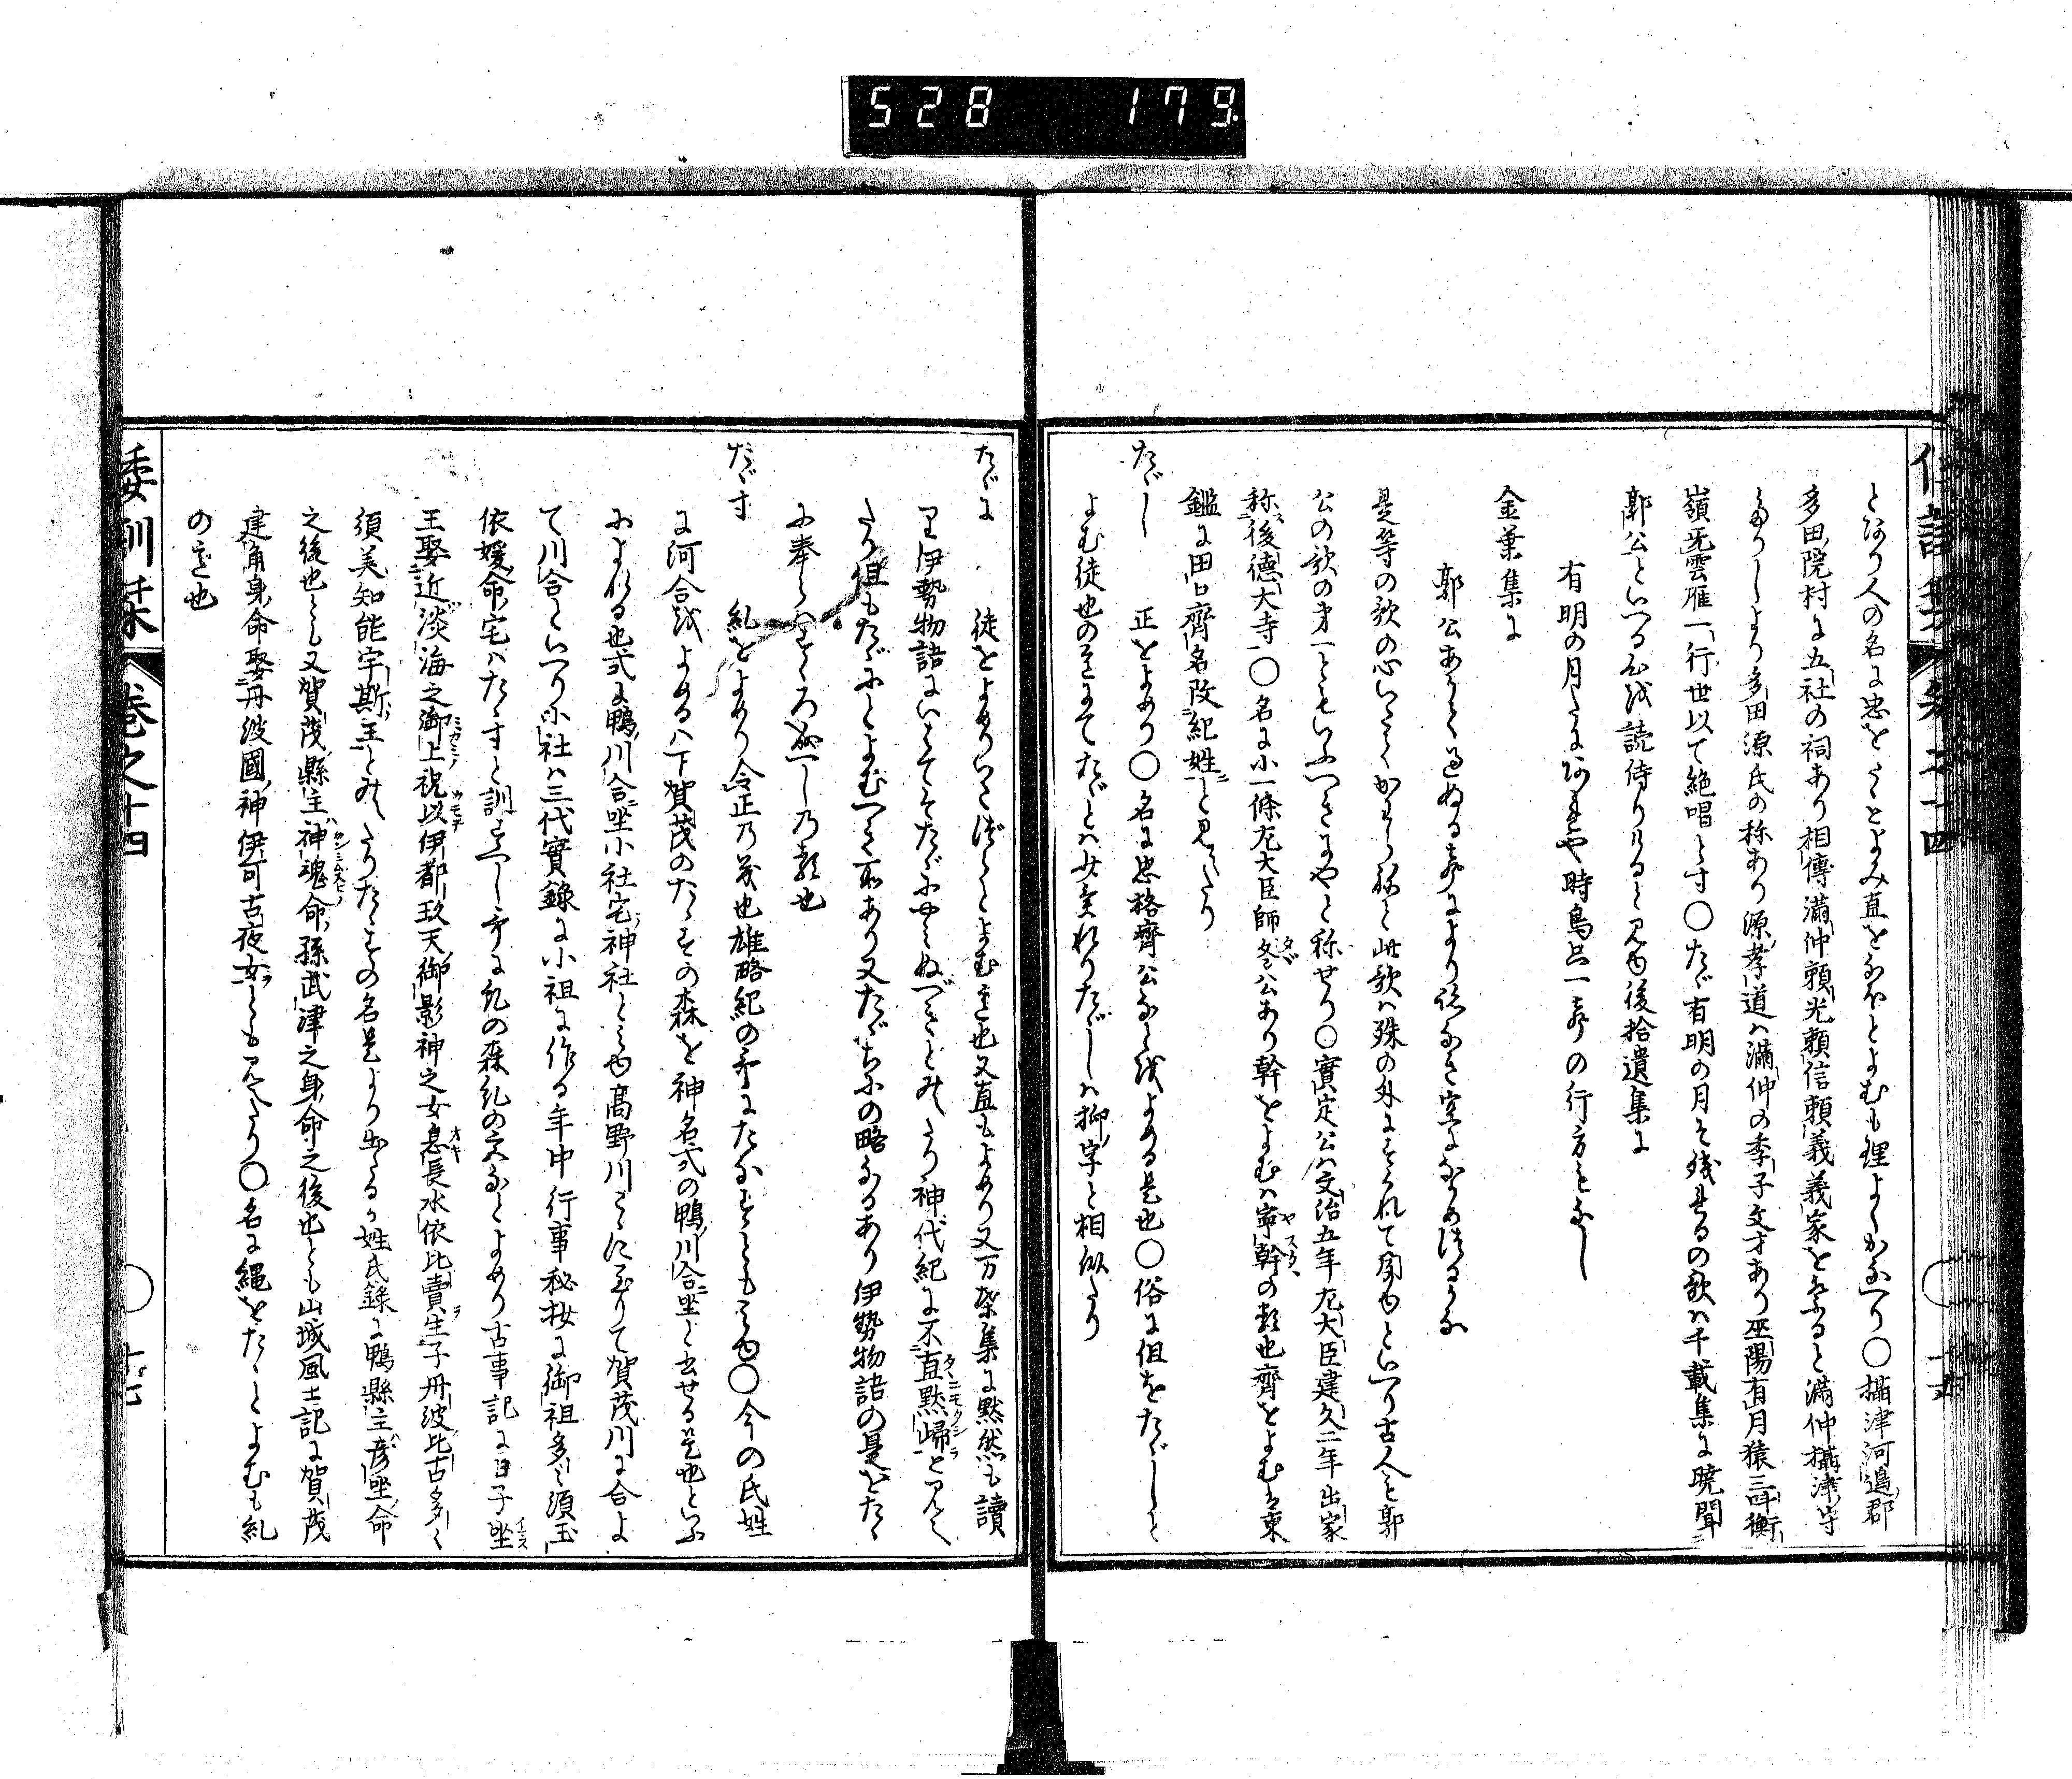 528 179
とあり人の名に忠をたゝとよみ直をなほとよむも理よくかなへり〇攝津河邉郡
多田院村に五社の祠あり相傳滿仲頼光頼信頼義義家をまつると滿仲攝津守
たりしより多田源氏の称あり源孝道ハ滿仲の季子文才あり巫陽有月猿三叫衡
嶺無雲雁一行世以て絶唱とす〇たゞ有明の月そ残れるの歌ハ千載集に暁聞
郭公といへる心を読侍りけると見ゆ後拾遺集に
有明の月たにあれや時鳥只一声の行方もみん
金葉集に
郭公あかて過ぬる声により跡なき空をなかめつるかな
是等の歌の心いつくかはらねと此歌ハ殊の外にすくれて聞ゆといへり古人も郭
公の歌の才一ともいふへきにやと称せり〇實定公ハ文治五年左大臣建久二年出家
称後徳大寺〇名に小一條左大臣師尹公あり幹をよむハ寧幹の類也齊をよむは東
鑑に田口齊名改紀姓と見えたり
たゞし 正をよめり〇名に忠格齊公なとをよめる是也〇俗に但をたゞしと
よむ徒也のミにてたゞとハ少異れりたゞしハ抑字と相似たり
たゞに 徒をよめりいたづらとよむ意也又直もよめり又万葉集に黙然も讀
り伊勢物語にいきてそたゞにやミぬべきとみえたり神代紀に不直黙歸と見え
たり但もたゞにとよむへき所あり又たゞちにの略なるあり伊勢物語の是をたゝ
に奉らはすゝろなへしの類也
たゞす 糺をよめり令正の義也雄略紀の哥にたなすともミゆ〇今の氏姓
に河合をよめるハ下賀茂のたゝすの森を神名式の鴨川合坐と書せる是也といふ
によれる也式に鴨川合坐小社宅神社とミゆ高野川こゝに至りて賀茂川に合よ
て川合といへり小社ハ三代實錄に小祖に作る年中行事秘抄に御祖多々須玉
依媛命宅ハたゝすと訓すへし哥に糺の森糺の宮なとよめり古事記に日子坐
王娶近淡海之御上祝以伊都玖天御影神之女息長水依比賣生子丹波比古多々
須美知能宇斯王とみえたりたゝすの名是より出たるか姓氏錄に鴨縣主彦坐命
之後也とも又賀茂縣主神魂命孫武津之身命之後也とも山城風土記に賀茂
建角身命娶丹波國神伊可古夜女ともみえたり〇名に縄をたゝとよむも糺
の意也
倭訓栞 巻之十四